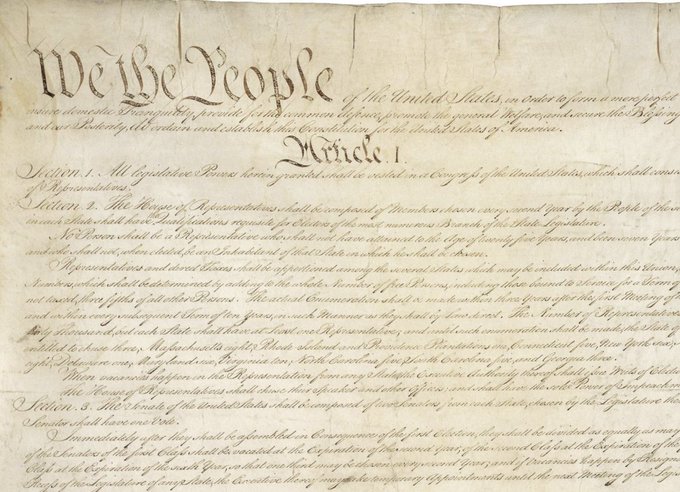 We the People of the United States, in Order to form a more perfect
insure domestic Tranquility, provide for the common defence, promote the general Welfare, and secure the Blessings
and our Posterity, do ordain and establish this Constitution for the United States of America.
Article. I.
Section. 1. All legislative Powers herein granted shall be vested in a Congress of the United States, which shall consis
of Representatives.
Section. 2. The House of Representatives shall be composed of Members chosen every second Year by the People of the se
in each State shall have Qualifications requisite for Electors of the most numerous Branch of the State Legislature.
No Person shall be a Representative who shall not have attained to the Age of twenty five Years, and been seven Years
and who shall not, when elected, be an Inhabitant of that State in which he shall be chosen.
Representatives and direct Taxes shall be apportioned among the several States which may be included within this Union,
Numbers, which shall be determined by adding to the whole Number of free Persons, including those bound to Service for a Term of
not taxed, three fifths of all other Persons. The actual Enumeration shall be made within three Years after the first Meeting of
and within every subsequent Term of ten Years, in such Manner as they shall by Law direct. The Number of Representatives
thirty Thousand, but each State shall have at Least one Representative; and until such enumeration shall be made, the State of
entitled to chuse three, Massachusetts eight, Rhode Island and Providence Plantations one, Connecticut five, New York six,
eight, Delaware one, Maryland six, Virginia ten, North Carolina five, South Carolina five, and Georgia three.
When vacancies happen in the Representation from any State, the Executive Authority thereof shall issue Writs of Electio
The House of Representatives shall chuse their Speaker and other Officers; and shall have the sole Power of Impeachmen
Section. 3. The Senate of the United States shall be composed of two Senators from each State, chosen by the Legislature the
Senator shall have one Vote.
Immediately after they shall be assembled in Consequence of the first Election, they shall be divided as equally as may
of the Senators of the first Class shall be vacated at the Expiration of the second Year, of the second Class at the Expiration of the
Class at the Expiration of the sixth Year, so that one third may be chosen every second Year; and if Vacancies happen by Resigna
Recess of the Legislature of any State, the Executive thereof may make temporary Appointments until the next Meeting of the Legis